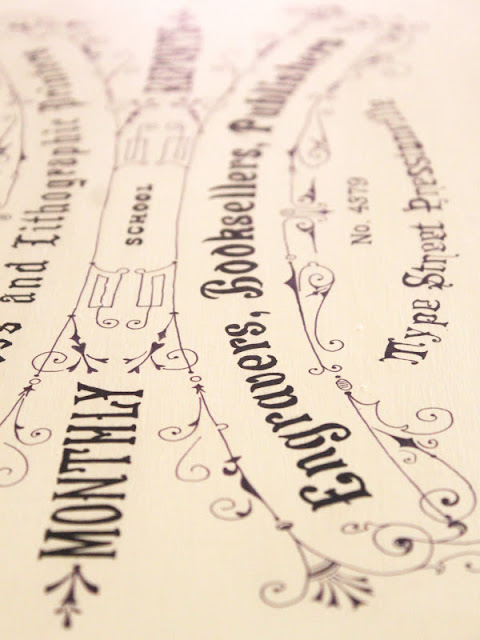 and Lithographic Printers
MONTHLY
SCHOOL
REPORTS
Engravers, Booksellers, Publishers
No. 4979
Street